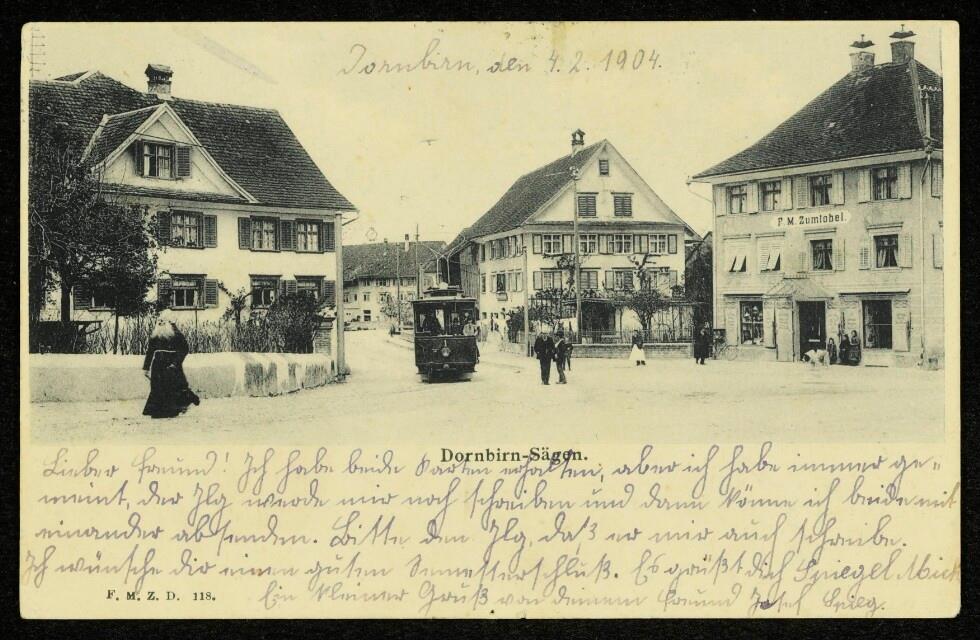 Dornbirn, den 4.2.1904.
F. M. Zumtobel.
Dornbirn-Sägen.
Lieber Freund! Ich habe beide Karten erhalten, aber ich habe immer ge-
meint, der Ilg werde mir noch schreiben und dann könne ich beide mit
einander absenden. Bitte den Ilg, daß er mir auch schreibe.
Ich wünsche dir einen guten Semesterschluß. Es grüßt dich Spiegel
F. M. Z. D. 118.
Ein kleiner Gruß von deinem Freund Josef